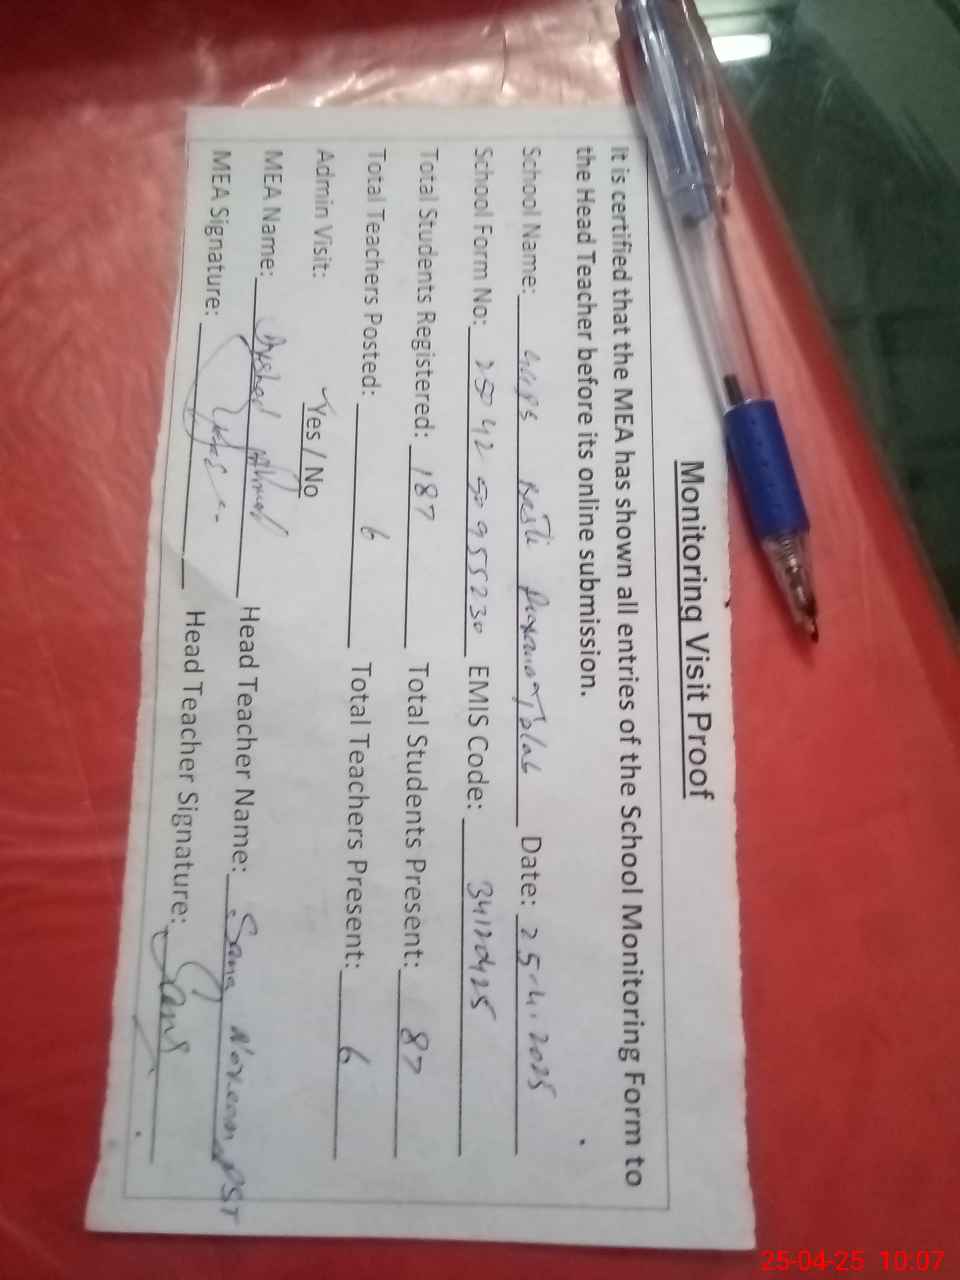 Monitoring Visit Proof
It is certified that the MEA has shown all entries of the School Monitoring Form to
the Head Teacher before its online submission.
School Name: Basti Tblab Date: 25-4-2025
School Form No: 254250955230 EMIS Code: 34120425
Total Students Registered: 187 Total Students Present: 87
Total Teachers Posted: 6 Total Teachers Present: 6
Admin Visit: Yes / No
MEA Name: Ahmad Head Teacher Name: Sana Noreen PST
MEA Signature: Head Teacher Signature: Sana
25-04-25 10:07